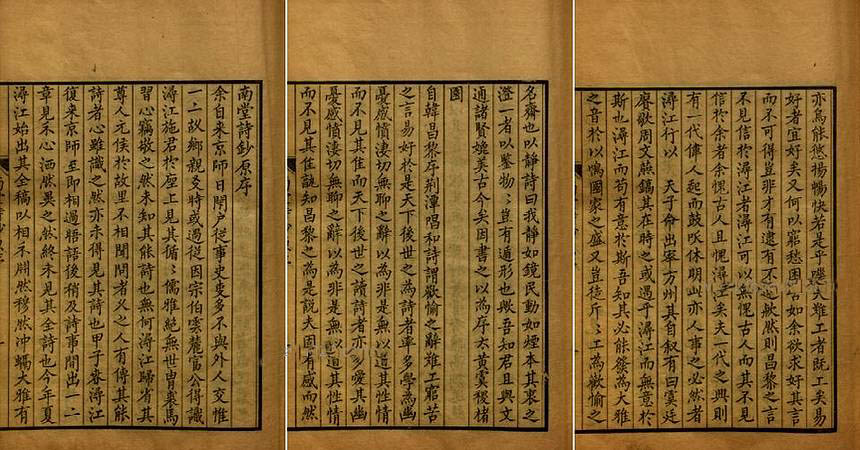 南堂詩鈔原序
余自来京師日閉戶從事史吏多不與外人交惟
一二故鄉親友時或過從因宗伯雲麓宫公得識
潯江施君於座上見其循〻儒雅絕無世胄裘馬
習心竊敬之然未知其能詩也無何潯江歸省其
尊人元侯於故里不相聞問者久之人有傳其能
詩者心雖識之然亦未得見其詩也甲子春潯江
復来京師至即相過晤語後稍及詩事間出一二
章見示心洒然異之然終未見其全詩也今年夏
潯江始出其全稿以相示淵然穆然冲瀜大雅有
名齋也以靜詩曰我靜如鏡民動如煙本其衷之
澄一者以鑒物〻豈有遁形也歟吾知君且與文
通諸賢媲美古今矣因書之以為序太黄虞稷楮
園
自韓昌黎序荊潭唱和詩謂歡愉之辭難工窮苦
之言易好於是天下後世之為詩者率多學為幽
憂感憤淒切無聊之辭以為非是無以道其性情
而不見其佳而天下後世之讀詩者亦多愛其幽
憂感憤淒切無聊之辭以為非是無以道其性情
而不見其佳詎知昌黎之為是說夫固有感而然
亦烏能悠揚暢快若是乎嗟夫難工者既工矣易
好者宜好矣又何以窮愁困苦如余欲求好其言
而不可得豈非才有逮有不逮歟然則昌黎之言
不見信於潯江者潯江可以無愧古人而其不見
信於余者余愧古人且愧潯江矣夫一代之興則
有一代偉人起而鼓吹休明此亦人事之必然者
潯江行以　天子命出宰方州其自叙有曰虞廷
賡歌周文燕鎬其在時之或遇乎潯江而無意於
斯也潯江而苟有意於斯吾知其必能發為大雅
之音於以鳴國家之盛又豈徒斤〻工為歡愉之